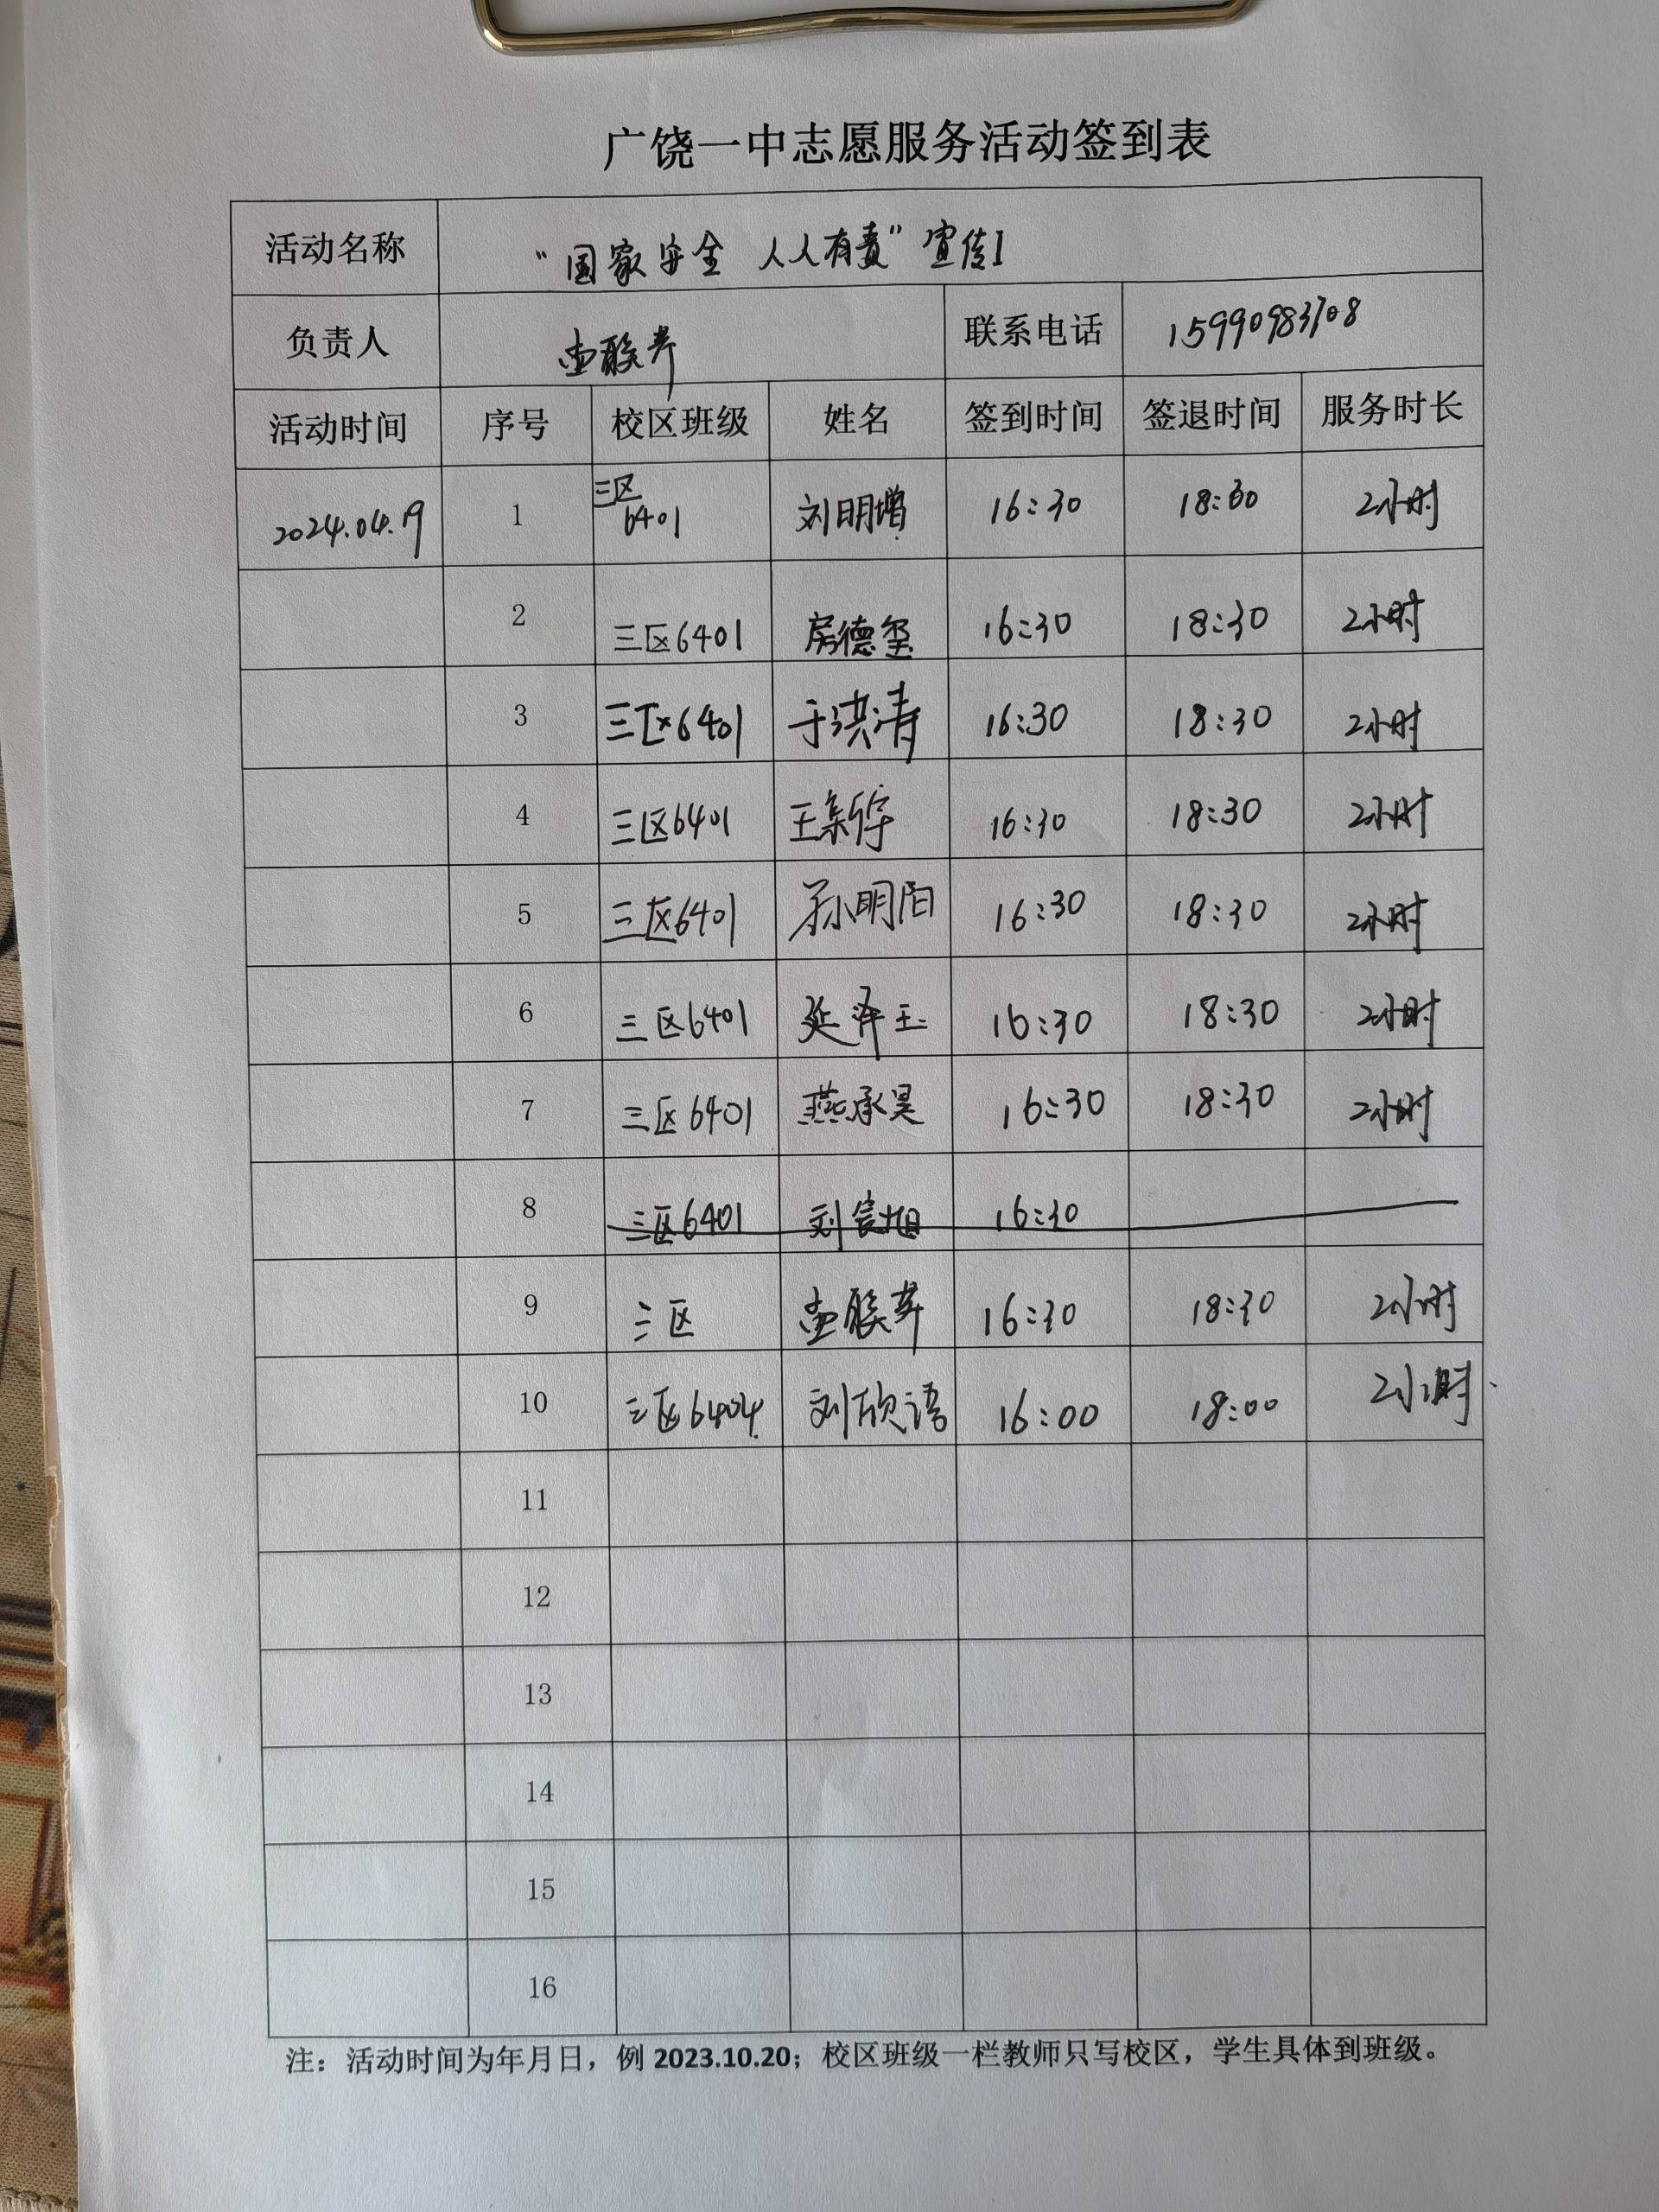 广饶一中志愿服务活动签到表
活动名称 “国家安全 人人有责”宣传1
负责人 联系电话 15990983708
活动时间 序号 校区班级 姓名 签到时间 签退时间 服务时长
2024.04.19 1 三区6401 刘明增 16:30 18:30 2小时
2 三区6401 房德玺 16:30 18:30 2小时
3 三区6401 于洪涛 16:30 18:30 2小时
4 三区6401 16:30 18:30 2小时
5 三区6401 孙明阳 16:30 18:30 2小时
6 三区6401 延泽玉 16:30 18:30 2小时
7 三区6401 燕承昊 16:30 18:30 2小时
8 三区6401 16:30
9 三区 16:30 18:30 2小时
10 三区6404 刘欣语 16:00 18:00 2小时
11
12
13
14
15
16
注：活动时间为年月日，例 2023.10.20；校区班级一栏教师只写校区，学生具体到班级。